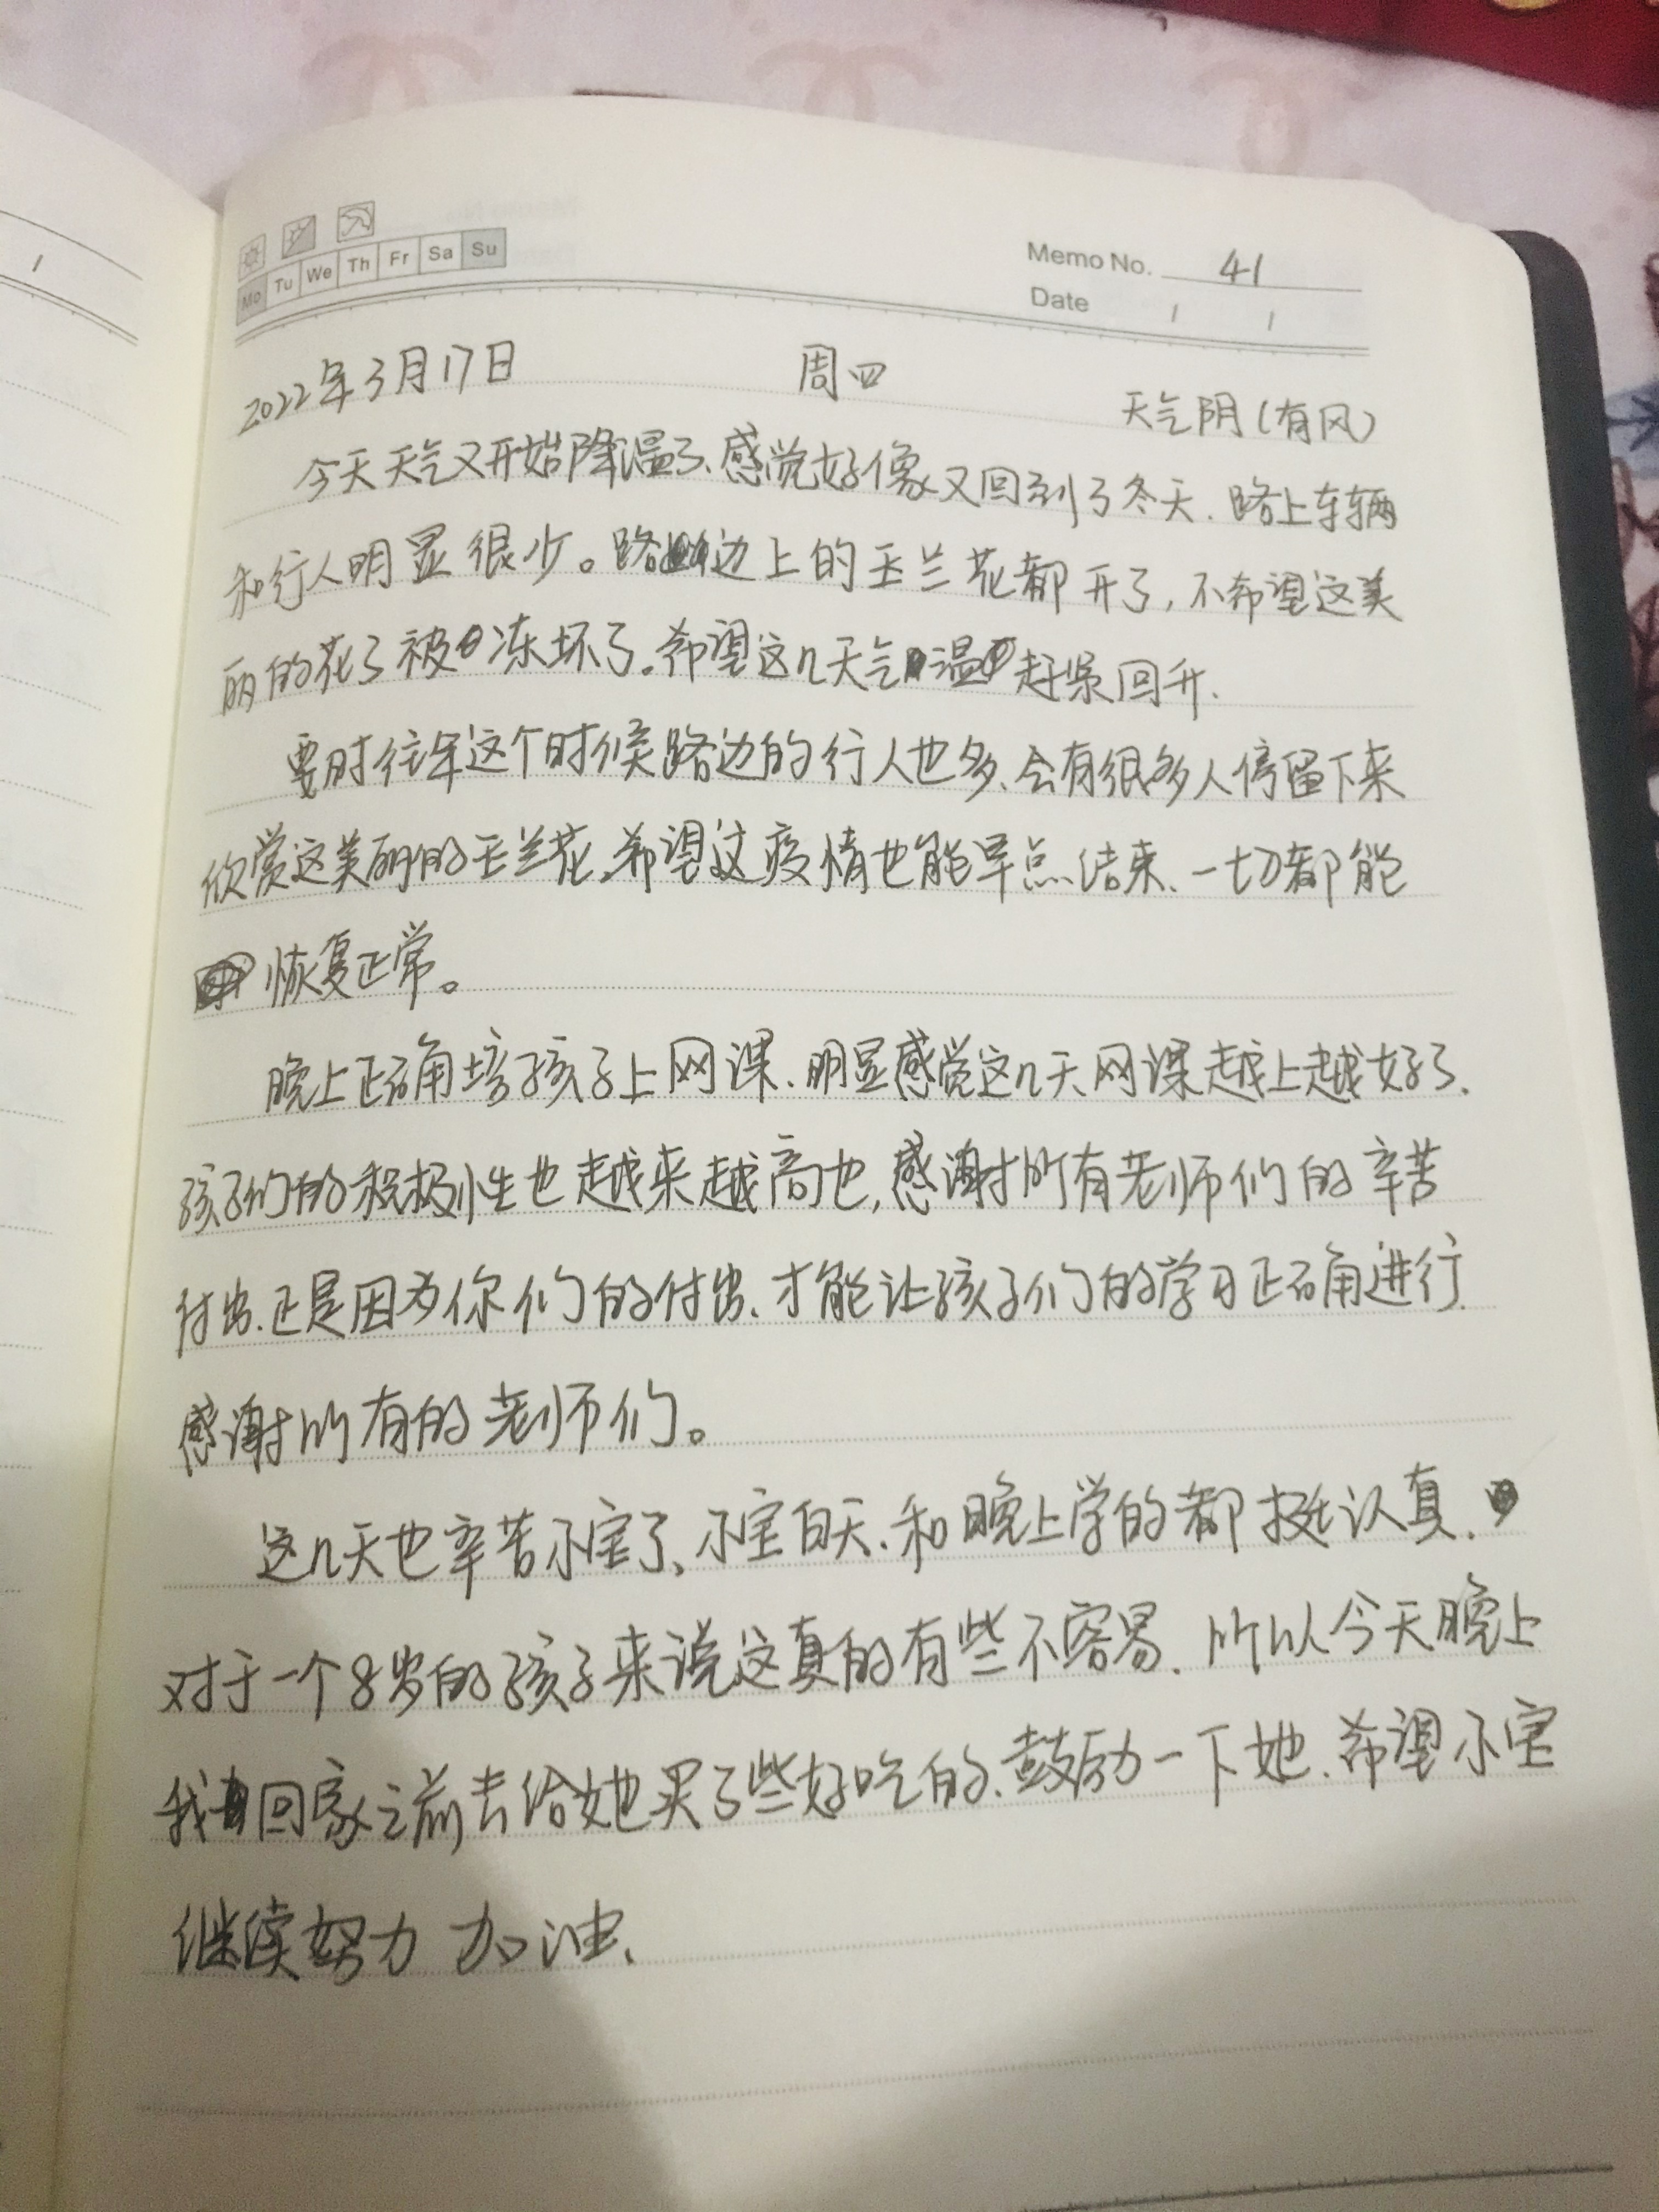 Mo Tu We Th Fr Sa Su
Memo No. 41
Date / /
2022年3月17日 周四 天气阴(有风)
今天天气又开始降温了、感觉好像又回到了冬天. 路上车辆
和行人明显很少。路边上的玉兰花都开了, 不希望这美
丽的花了被冻坏了。希望这几天气温赶紧回升.
要时往年这个时候路边的行人也多、会有很多人停留下来
欣赏这美丽的玉兰花,希望这疫情也能早点结束、一切都能
恢复正常。
晚上正确培孩子上网课、明显感觉这几天网课越上越好了.
孩子们的积极性也越来越高也,感谢所有老师们的辛苦
付出.正是因为你们的付出、才能让孩子们的学习正确进行.
感谢所有的老师们。
这几天也辛苦小宝了、小宝白天.和晚上学的都挺认真.
对于一个8岁的孩子来说这真的有些不容易. 所以今天晚上
我回家之前去给她买了些好吃的、鼓励一下她.希望小宝
继续努力 加油、